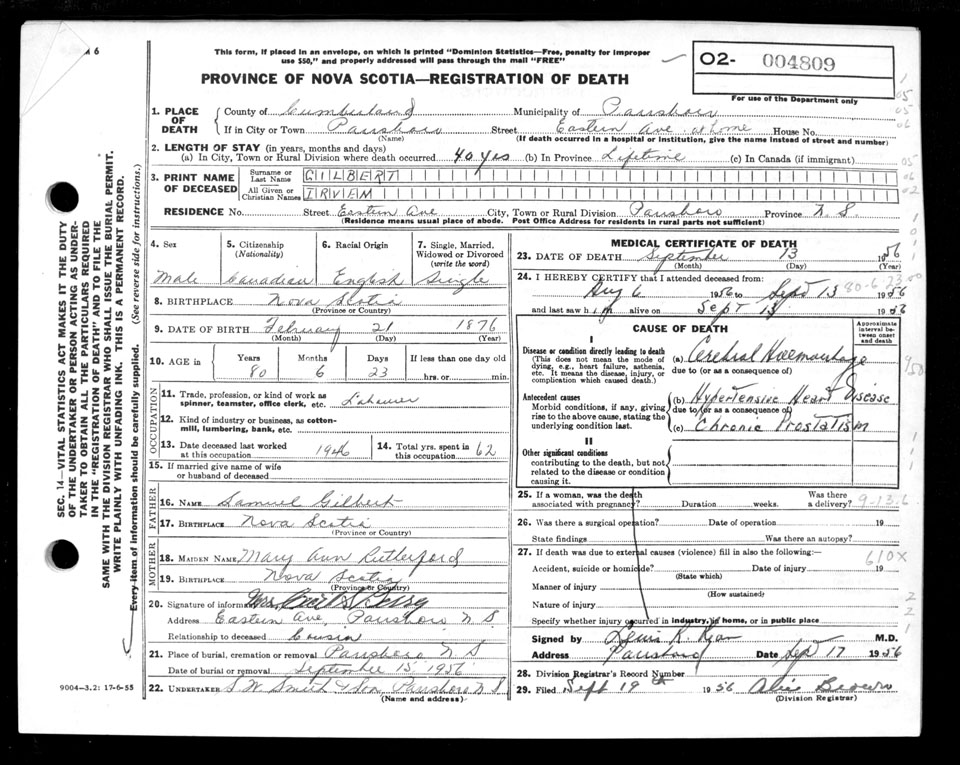 This form, if placed in an envelope, on which is printed "Dominion Statistics—Free, penalty for improper
use $50," and properly addressed will pass through the mail "FREE"
PROVINCE OF NOVA SCOTIA—REGISTRATION OF DEATH
O2- 004809
For use of the Department only
1. PLACE OF DEATH
County of Cumberland Municipality of Parrsboro
If in City or Town Parrsboro Street Eastern Ave at home House No.
(Name) (If death occurred in a hospital or institution, give the name instead of street and number)
2. LENGTH OF STAY (in years, months and days)
(a) In City, Town or Rural Division where death occurred 40 yrs (b) In Province Lifetime (c) In Canada (if immigrant)
3. PRINT NAME OF DECEASED
Surname or Last Name GILBERT
All Given or Christian Names IRVEM
RESIDENCE No. Street Eastern Ave City, Town or Rural Division Parrsboro Province N S
(Residence means usual place of abode. Post Office Address for residents in rural parts not sufficient)
4. Sex 5. Citizenship (Nationality) 6. Racial Origin 7. Single, Married, Widowed or Divorced (write the word)
Male Canadian English Single
8. BIRTHPLACE Nova Scotia
(Province or Country)
9. DATE OF BIRTH February 21 1876
(Month) (Day) (Year)
10. AGE in Years Months Days If less than one day old
80 6 23 hrs. or min.
OCCUPATION
11. Trade, profession, or kind of work as spinner, teamster, office clerk, etc. Labourer
12. Kind of industry or business, as cotton-mill, lumbering, bank, etc.
13. Date deceased last worked at this occupation 1946 14. Total yrs. spent in this occupation 62
15. If married give name of wife or husband of deceased
FATHER
16. NAME Samuel Gilbert
17. BIRTHPLACE Nova Scotia
(Province or Country)
MOTHER
18. MAIDEN NAME Mary Ann Rutherford
19. BIRTHPLACE Nova Scotia
(Province or Country)
20. Signature of informant Mrs.
Address Eastern Ave, Parrsboro N S
Relationship to deceased Cousin
21. Place of burial, cremation or removal Parrsboro N S
Date of burial or removal September 15, 1956
22. UNDERTAKER S W Smith & Son Parrsboro N S
(Name and address)
9004—3.2: 17-6-55
MEDICAL CERTIFICATE OF DEATH
23. DATE OF DEATH September 13 1956
(Month) (Day) (Year)
24. I HEREBY CERTIFY that I attended deceased from:
Aug 6 1956 to Sept 13 1956
80-6-23
and last saw him alive on Sept 13 1956
CAUSE OF DEATH
Approximate interval between onset and death
I
Disease or condition directly leading to death (a) Cerebral Haemorrhage
(This does not mean the mode of dying, e.g., heart failure, asthenia, etc. It means the disease, injury, or complication which caused death.)
due to (or as a consequence of)
Antecedent causes (b) Hypertensive Heart Disease
Morbid conditions, if any, giving rise to the above cause, stating the underlying condition last.
due to (or as a consequence of)
(c) Chronic Prostatism
II
Other significant conditions
contributing to the death, but not related to the disease or condition causing it.
25. If a woman, was the death associated with pregnancy? Duration weeks. Was there a delivery?
9-13.6
26. Was there a surgical operation? Date of operation 19
State findings Was there an autopsy?
27. If death was due to external causes (violence) fill in also the following:—
610X
Accident, suicide or homicide? Date of injury 19
(State which)
Manner of injury
(How sustained)
Nature of injury
Specify whether injury occurred in industry, in home, or in public place
Signed by M.D.
Address Parrsboro Date Sept 17 1956
28. Division Registrar's Record Number
29. Filed Sept 19th 1956 Brown
(Division Registrar)
SEC. 14—VITAL STATISTICS ACT MAKES IT THE DUTY
OF THE UNDERTAKER OR PERSON ACTING AS UNDER-
TAKER TO OBTAIN ALL THE PARTICULARS REQUIRED
IN THE "REGISTRATION OF DEATH" AND TO FILE THE
SAME WITH THE DIVISION REGISTRAR WHO SHALL ISSUE THE BURIAL PERMIT.
WRITE PLAINLY WITH UNFADING INK. THIS IS A PERMANENT RECORD.
Every item of information should be carefully supplied. (See reverse side for instructions.)